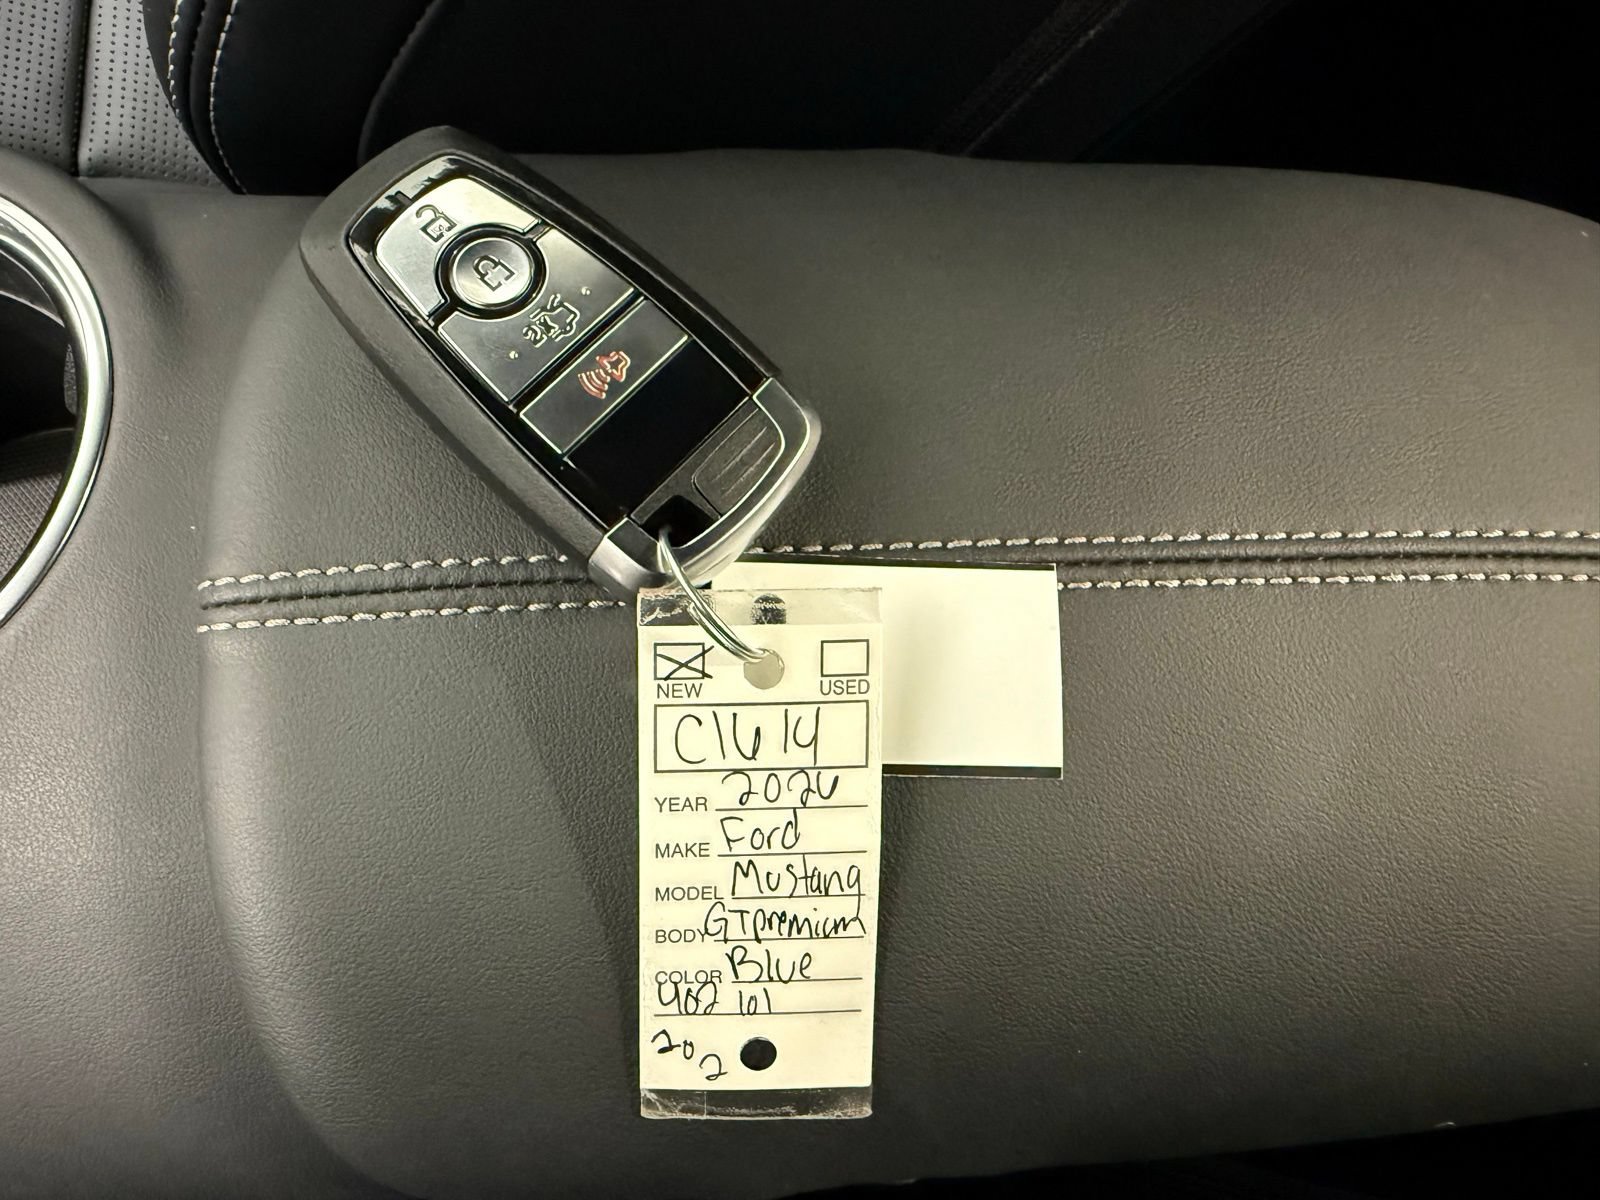 2X
NEW USED
C1614
YEAR 2026
MAKE Ford
MODEL Mustang
BODY GT premium
COLOR Blue
402 101
202